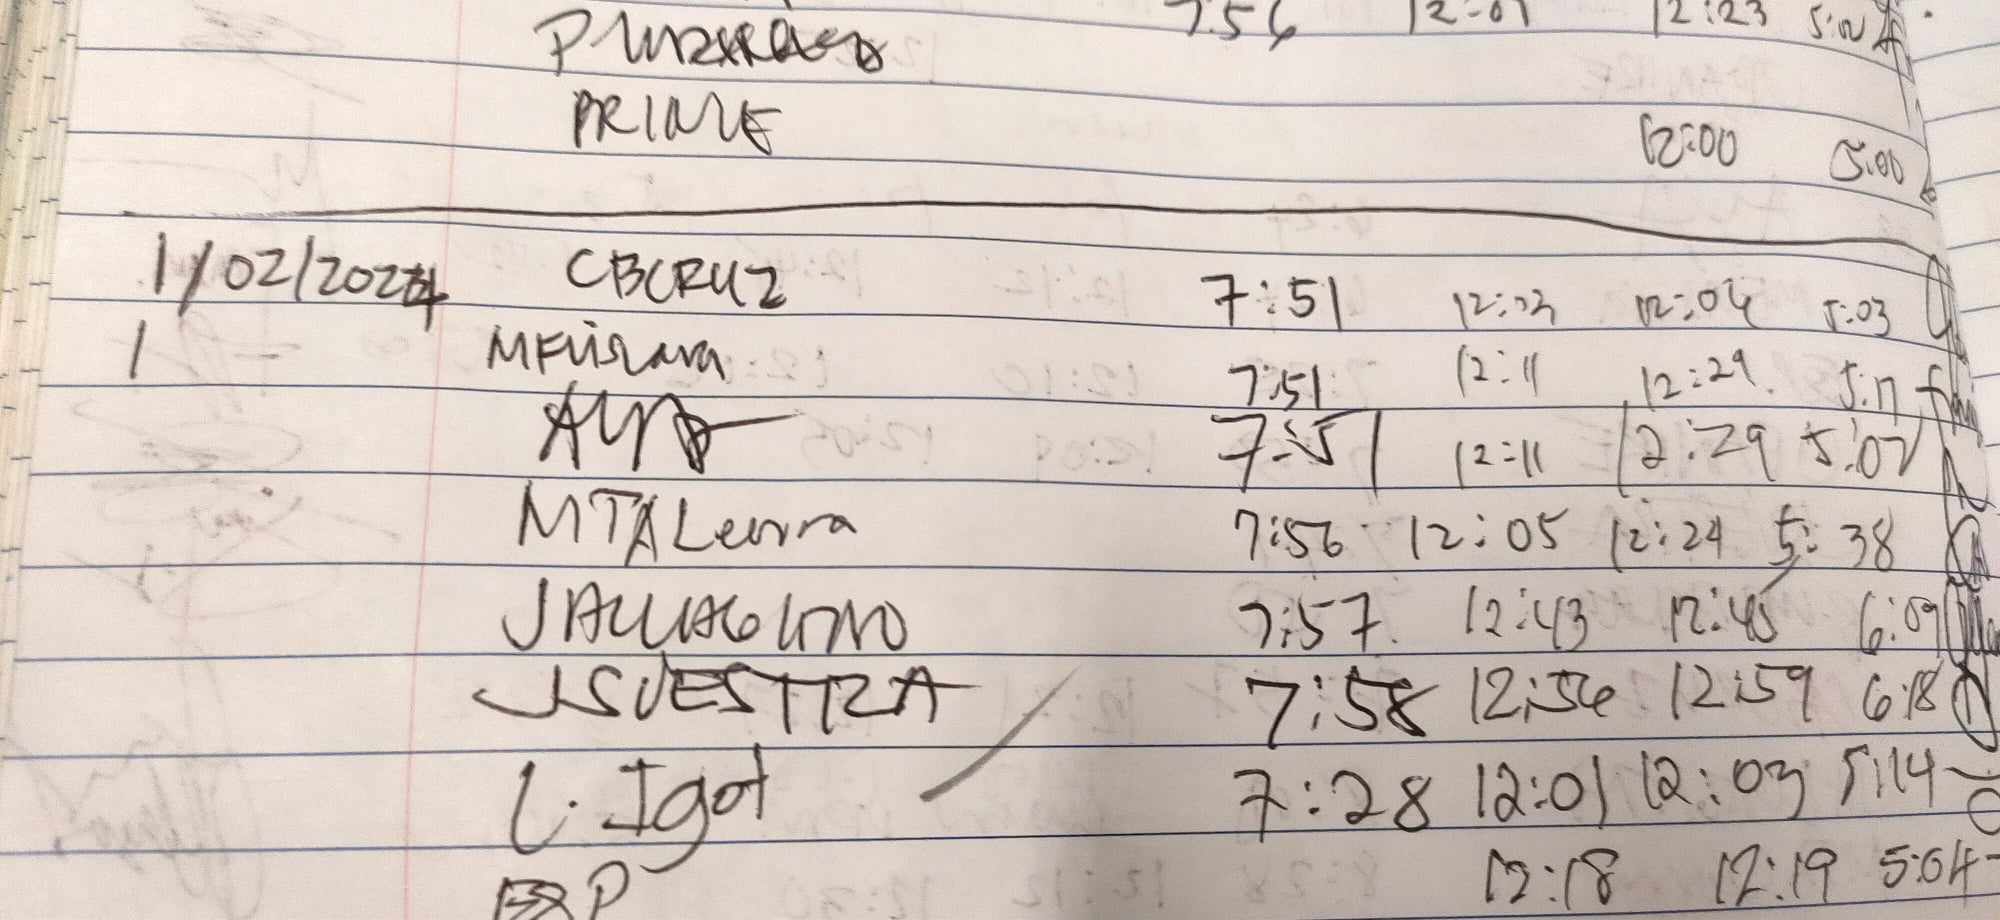 7:56 12:01 12:23 5:02
PRIME 12:00 5:00
1/02/2024 CBCRUZ 7:51 12:03 12:04 5:03
1 7:51 12:11 12:29 5:17
7:51 12:11 12:29 5:02
MTALenra 7:56 12:05 12:24 5:38
7:57 12:43 12:45 6:09
JSVESTIZA 7:58 12:56 12:59 6:18
L. Igot 7:28 12:01 12:03 5:14
12:18 12:19 5:04